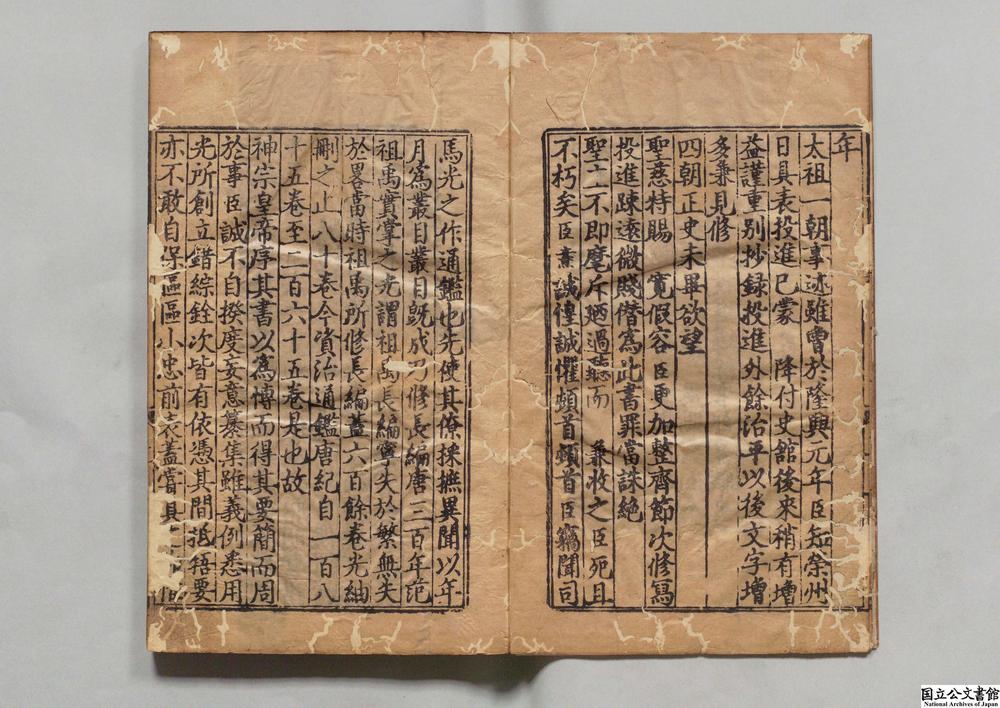 年
太祖一朝事迹雖曾於隆興元年臣知榮州
日具表投進已蒙 降付史舘後來稍有增
益謹重別抄録投進外餘治平以後文字增
多兼見修
四朝正史未畢欲望
聖慈特賜 寛假容臣更加整齊節次修寫
投進踈遠微賤僣為此書罪當誅絶
聖上不即麾斥廼過聽而 兼收之臣死且
不朽矣臣燾誠惶誠懼頓首頓首臣竊聞司
馬光之作通鑑也先使其僚採摭異聞以年
月為叢目叢目既成乃修長編唐三百年范
祖禹實掌之光謂祖禹長編寧失於繁無失
於畧當時祖禹所修長編蓋六百餘卷光紬
刪之止八十卷今資治通鑑唐紀自一百八
十五卷至二百六十五卷是也故
神宗皇帝序其書以為博而得其要簡而周
於事臣誠不自揆度妄意纂集雖義例悉用
光所創立錯綜銓次皆有依憑其間抵捂要
亦不敢自保區區小忠前表蓋嘗具
国立公文書館
National Archives of Japan